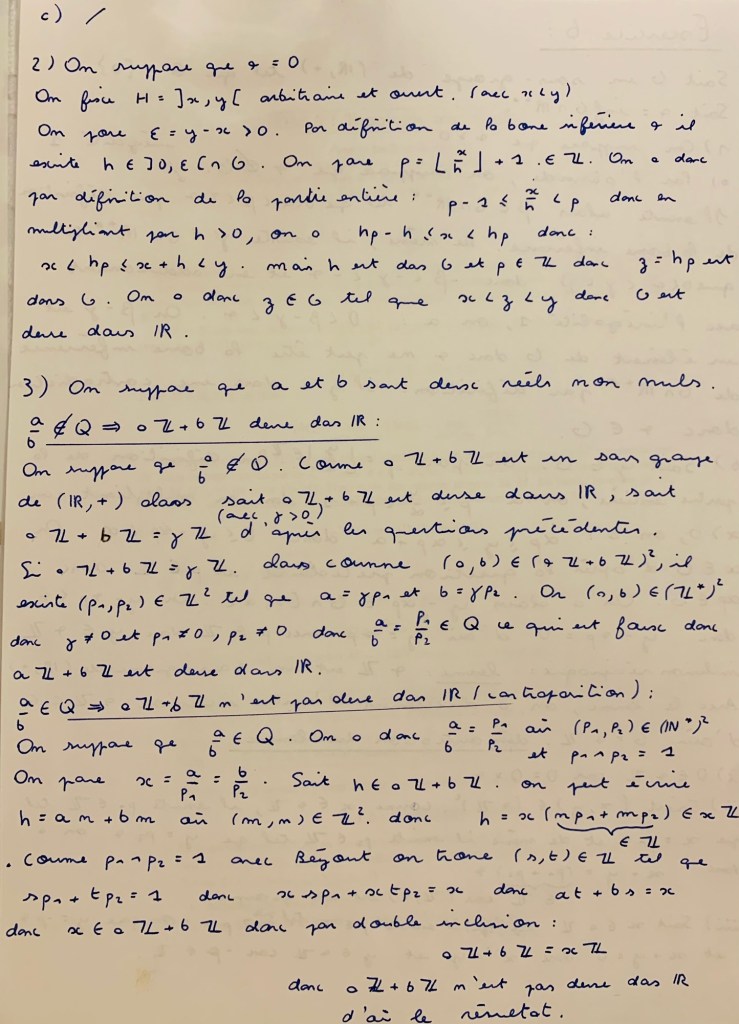 c) /
2) On suppose que r = 0
On fixe H = ]x, y[ arbitraire et ouvert. (avec x<y)
On pose ε = y-x > 0. Par définition de la borne inférieure r il
existe h ∈ ]0, ε[ ∩ G. On pose p = ⌊x/h⌋ + 1. ∈ ℤ. On a donc
par définition de la partie entière : p-1 ≤ x/h < p donc en
multipliant par h > 0, on a hp - h ≤ x < hp donc :
x < hp ≤ x + h < y. mais h est dans G et p ∈ ℤ donc z = hp est
dans G. On a donc z ∈ G tel que x < z < y donc G est
dense dans ℝ.
3) On suppose que a et b sont deux réels non nuls.
a/b ∉ Q ⇒ aℤ + bℤ dense dans ℝ :
On suppose que a/b ∉ Q. Comme aℤ + bℤ est un sous groupe
de (ℝ, +) alors soit aℤ + bℤ est dense dans ℝ, soit
aℤ + bℤ = γℤ (avec γ>0) d'après les questions précédentes.
Si aℤ + bℤ = γℤ. alors comme (a,b) ∈ (aℤ + bℤ)², il
existe (p₁,p₂) ∈ ℤ² tel que a = γp₁ et b = γp₂. Or (a,b) ∈ (ℤ*)²
donc γ ≠ 0 et p₁ ≠ 0, p₂ ≠ 0 donc a/b = p₁/p₂ ∈ Q ce qui est faux donc
aℤ + bℤ est dense dans ℝ.
a/b ∈ Q ⇒ aℤ + bℤ n'est pas dense dans ℝ (contraposition) :
On suppose que a/b ∈ Q. On a donc a/b = p₁/p₂ où (p₁,p₂) ∈ (ℕ*)²
et p₁ ∧ p₂ = 1
On pose x = a/p₁ = b/p₂. Soit h ∈ aℤ + bℤ. on peut écrire
h = an + bm où (m,n) ∈ ℤ². donc h = x(np₁ + mp₂) ∈ xℤ
∈ ℤ
. Comme p₁ ∧ p₂ = 1 avec Bézout on trouve (s,t) ∈ ℤ tel que
sp₁ + tp₂ = 1 donc xsp₁ + xtp₂ = x donc at + bs = x
donc x ∈ aℤ + bℤ donc par double inclusion :
aℤ + bℤ = xℤ
donc aℤ + bℤ n'est pas dense dans ℝ
d'où le résultat.